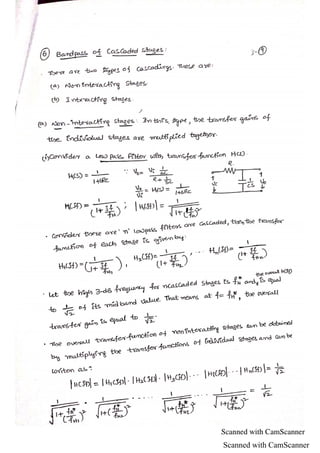 ⑥ Bandpass of Cascaded stages :
There are two types of cascadings. These are:
(a) Non interacting Stages
(b) Interacting Stages.
(a) Non-Interacting stages: In this type, the transfer gains of
the individual stages are multiplied together.
(i) Consider a Low pass filter with transfer function H(s)
H(s) = 1/(1+sRC) ∵ V0 =
V0/Vi = H(s) = 1/(1+sRC)
H(jf) = 1/(1+ jf/fH) ; |H(jf)| = 1/√(1+(f/fH)²)
R
Vi 1/CS V0
Consider there are 'n' lowpass filters are cascaded, then the transfer
function of each stage is given by:
H1(jf) = 1/(1+ jf/fH1), H2(jf) = 1/(1+ jf/fH2), ... Hn(jf) = 1/(1+ jf/fHn)
Let the high 3-dB frequency for n cascaded stages is fH* and is equal
to 1/√2 of its mid band value. That means at f = fH*, the overall
transfer gain is equal to 1/√2.
The overall transfer function of noninteracting stages can be obtained
by multiplying the transfer functions of individual stages and can be
written as:
|H(jf)| = |H1(jf)| · |H2(jf)| · |H3(jf)| ... |Hn(jf)| = 1/√2
1/√(1+(fH*/fH1)²) · 1/√(1+(fH*/fH2)²) ... = 1/√2
Scanned with CamScanner
Scanned with CamScanner